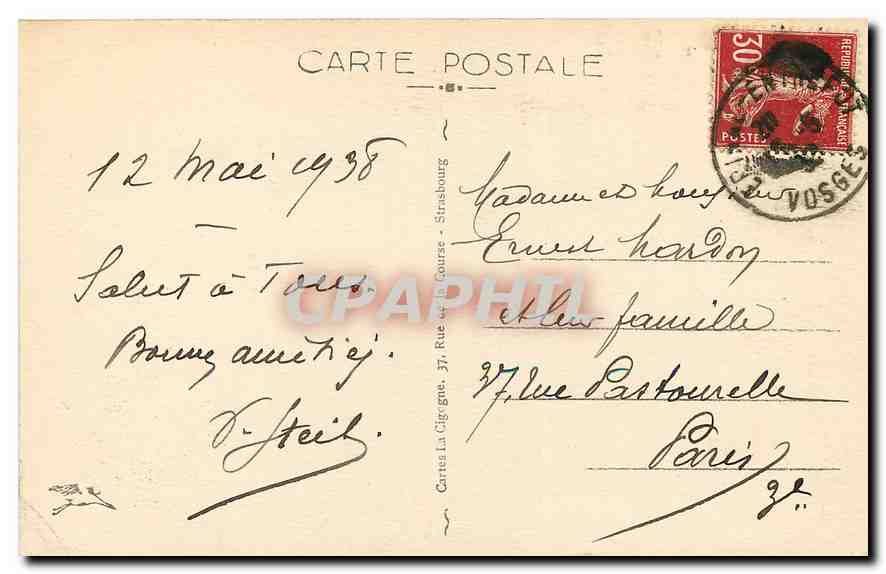 CARTE POSTALE
12 Mai 1938
Salut à Tous.
Bonnes amitiés.
Cartes La Cigogne, 37, Rue de la Course - Strasbourg
Madame et Monsieur
Ernest Hardon
et leur famille
37, rue Pastourelle
Paris
3e
30
REPUBLIQUE FRANÇAISE
POSTES
VOSGES
CPAPHIL